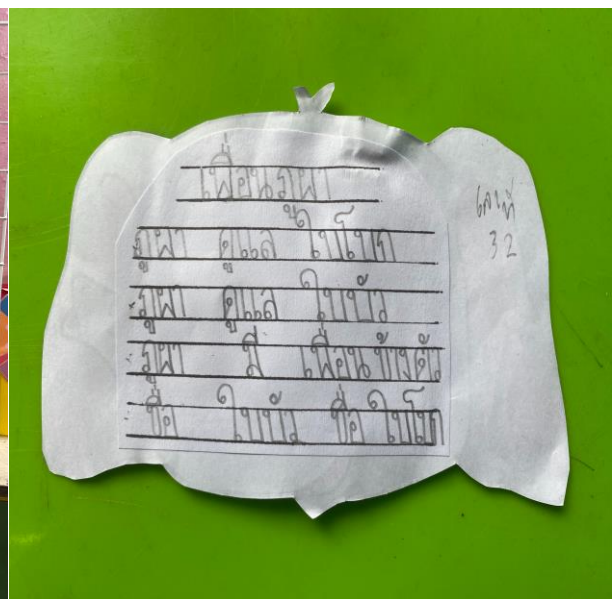 เพื่อนภูผา
ภูผา ดูแล ใบโบก
ภูผา ดูแล ใบบัว
ภูผา มี เพื่อนช้างตัว
ชื่อ ใบบัว ชื่อ ใบโบก
เลขที่
32